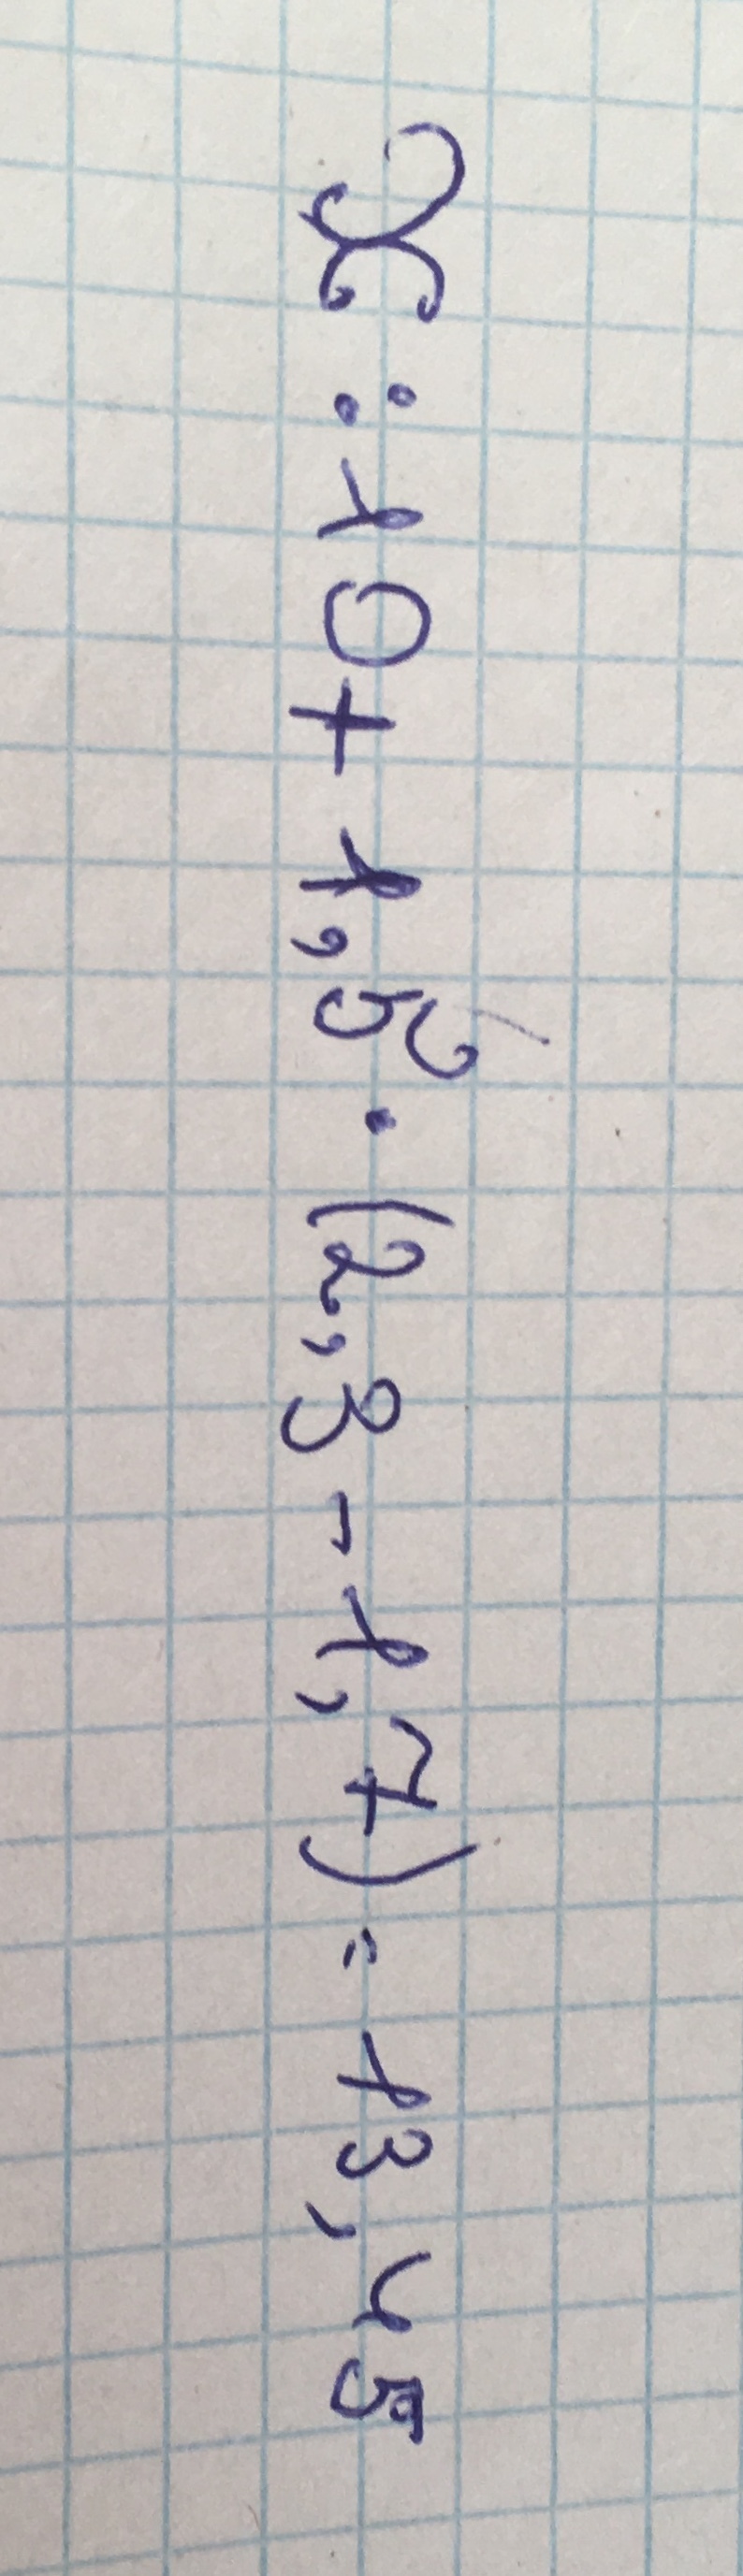 x : 10 + 1,5 · (2,3 - 1,7) = 13,45